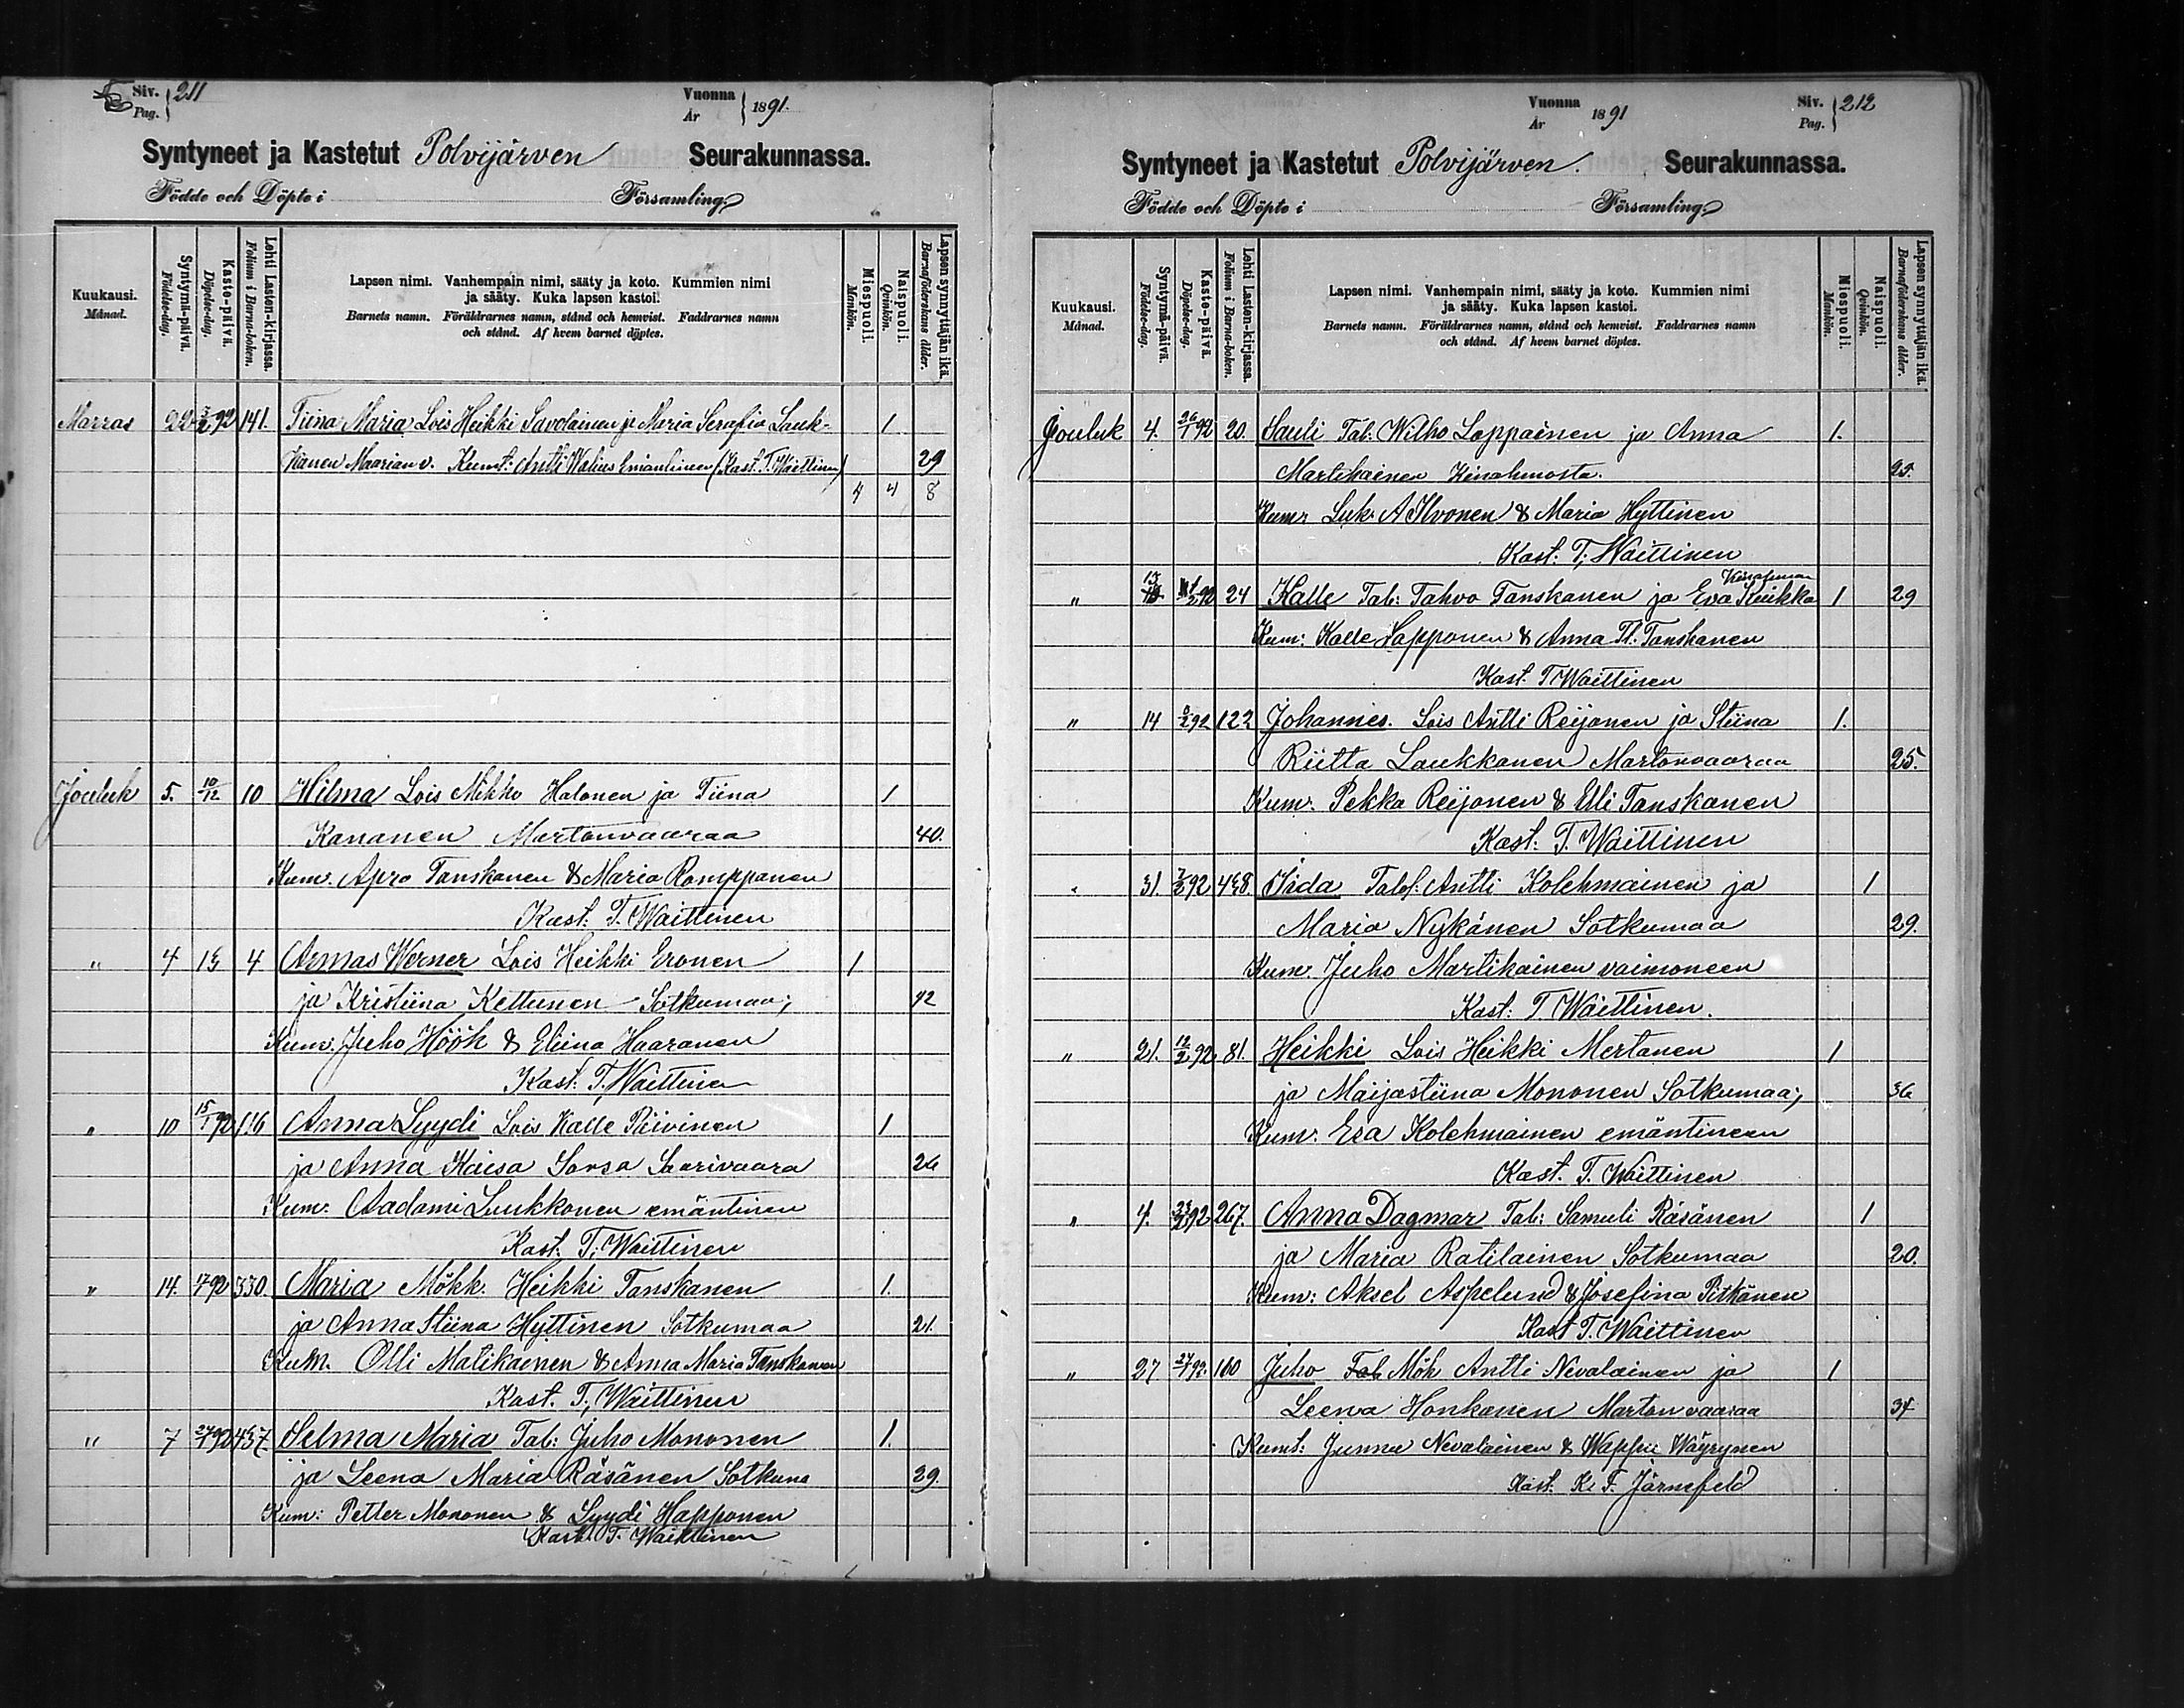 Siv. 211
Pag.
Vuonna
År 1891.
Syntyneet ja Kastetut Polvijärven Seurakunnassa.
Födde och Döpte i Församling.
Kuukausi.
Månad.
Syntymä-päivä.
Födelse-dag.
Kaste-päivä.
Döpelse-dag.
Lehti Lasten-kirjassa.
Folium i Barna-boken.
Lapsen nimi. Vanhempain nimi, sääty ja koto. Kummien nimi
ja sääty. Kuka lapsen kastoi.
Barnets namn. Föräldrarnes namn, stånd och hemvist. Faddrarnes namn
och stånd. Af hvem barnet döptes.
Miespuoli.
Mankön.
Naispuoli.
Qvinkön.
Lapsen synnyttäjän ikä.
Barnaföderskans ålder.
Marras 22 2/2 92 141. Tiina Maria Lois Heikki Savolainen ja Maria Serafia Lauk- 1
kanen Maarian v. Kumt: Antti Walius Emäntineen (Kast. T. Waittinen) 29
4 4 8
Jouluk 5. 10/12 10 Hilma Lois Mikko Halonen ja Tiina 1
Kananen Martonvaaraa 40.
Kum. Apro Tanskanen & Maria Romppanen
Kast: T. Waittinen
" 4 13 4 Armas Werner Lois Heikki Eronen 1
ja Kristiina Kettunen Sotkumaa; 42
Kum. Juho Höök & Eliina Haaranen
Kast: T. Waittinen
" 10 15/1 92 116 Anna Lyydi Lois Kalle Piivinen 1
ja Anna Kaisa Sorsa Saarivaara 26
Kum: Aadami Luukkonen emäntineen
Kast. T. Waittinen
" 14. 17/1 92 330. Maria Mökk. Heikki Tanskanen 1.
ja Anna Stiina Hyttinen Sotkumaa 21.
Kum. Olli Matikainen & Anna Maria Tanskanen
Kast. T. Waittinen
" 7 24/1 92 437 Selma Maria Tal: Juho Mononen 1.
ja Leena Maria Räsänen Sotkuma 29.
Kum: Petter Mononen & Lyydi Happonen
Kast. T. Waittinen
Vuonna
År 1891
Siv. 212
Pag.
Syntyneet ja Kastetut Polvijärven. Seurakunnassa.
Födde och Döpte i Församling.
Kuukausi.
Månad.
Syntymä-päivä.
Födelse-dag.
Kaste-päivä.
Döpelse-dag.
Lehti Lasten-kirjassa.
Folium i Barna-boken.
Lapsen nimi. Vanhempain nimi, sääty ja koto. Kummien nimi
ja sääty. Kuka lapsen kastoi.
Barnets namn. Föräldrarnes namn, stånd och hemvist. Faddrarnes namn
och stånd. Af hvem barnet döptes.
Miespuoli.
Mankön.
Naispuoli.
Qvinkön.
Lapsen synnyttäjän ikä.
Barnaföderskans ålder.
Jouluk 4. 26/1 92 20. Sauli Tal: Wilho Loppainen ja Anna 1.
Martikainen Kinahmosta. 25.
Kum: Luk: A Ilvonen & Maria Hyttinen
Kast: T. Waittinen
Kinahmon
" 13 2 92 24 Kalle Tal: Tahvo Tanskanen ja Eva Kuikka 1 29
Kum: Kalle Sapponen & Anna Tanskanen
Kast. T Waittinen
" 14 2 92 122 Johannes. Lois Antti Reijonen ja Stiina 1.
Riitta Laukkanen Martonvaaraa 25.
Kum. Pekka Reijonen & Elli Tanskanen
Kast: T. Waittinen
" 31. 2 92 438. Iida Talol: Antti Kolehmainen ja 1
Maria Nykänen Sotkumaa 29.
Kum. Juho Martikainen vaimoneen
Kast: T Waittinen.
" 21. 12/2 92 81. Heikki Lois Heikki Mertanen 1
ja Maijastiina Mononen Sotkumaa; 36
Kum. Esa Kolehmainen emäntineen
Kast. T. Waittinen
" 4. 23/2 92 267. Anna Dagmar Tal: Samuli Räsänen 1
ja Maria Ratilainen Sotkumaa 20.
Kum: Aksel Aspelund & Josefina Pitkänen
Kast T. Waittinen
" 27 27/1 92. 160 Juho Mök Antti Nevalainen ja 1
Leena Honkanen Martonvaaraa 34
Kumt: Junnu Nevalainen & Wappu Wäyrynen
Kast. K. F. Järnefeld